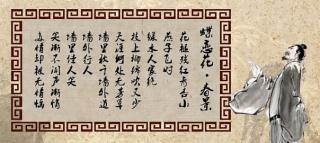 蝶恋花·春景
花褪残红青杏小
燕子飞时
绿水人家绕
枝上柳绵吹又少
天涯何处无芳草
墙里秋千墙外道
墙外行人
墙里佳人笑
笑渐不闻声渐悄
多情却被无情恼